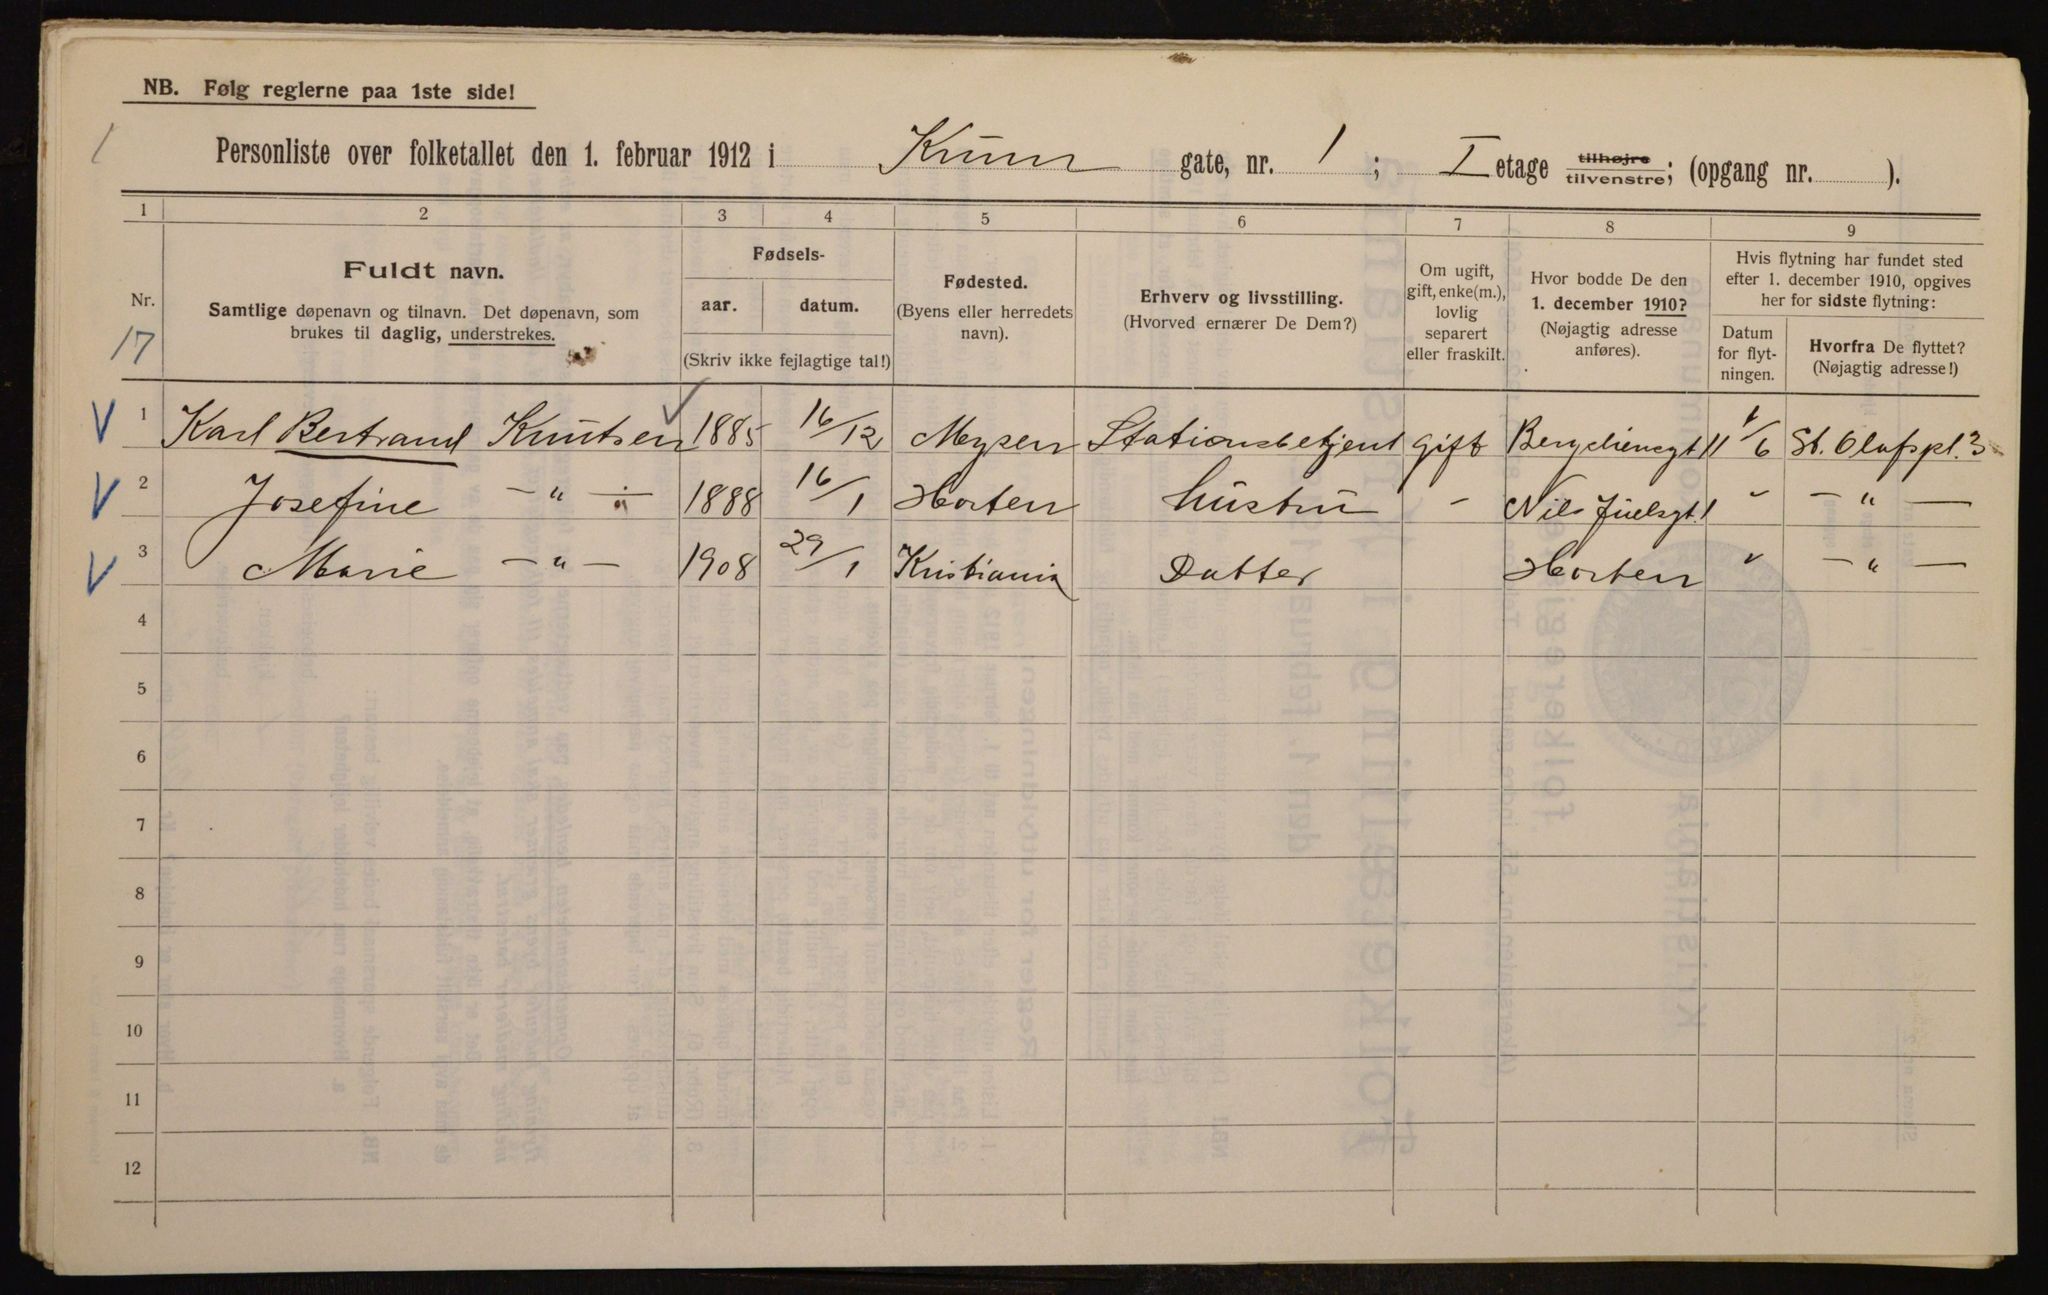 NB. Følg reglerne paa 1ste side!
1
Personliste over folketallet den 1. februar 1912 i Krum gate, nr. 1; I etage tilhøjre tilvenstre; (opgang nr. ).
1 2 3 4 5 6 7 8 9
Nr.
17
Fuldt navn.
Samtlige døpenavn og tilnavn. Det døpenavn, som
brukes til daglig, understrekes.
Fødsels-
aar. datum.
(Skriv ikke fejlagtige tal!)
Fødested.
(Byens eller herredets
navn).
Erhverv og livsstilling.
(Hvorved ernærer De Dem?)
Om ugift,
gift, enke(m.),
lovlig
separert
eller fraskilt.
Hvor bodde De den
1. december 1910?
(Nøjagtig adresse
anføres).
Hvis flytning har fundet sted
efter 1. december 1910, opgives
her for sidste flytning:
Datum
for flyt-
ningen.
Hvorfra De flyttet?
(Nøjagtig adresse!)
V 1 Karl Bertrand Knutsen ✓ 1885 16/12 Mysen Stationsbetjent gift 1/6 St. Olafspl. 3
V 2 Josefine — " — 1888 16/1 Horten Hustru " Nils Juelsgt. 1 " — " —
V 3 Marie — " — 1908 29/1 Kristiania Datter Horten " — " —
4
5
6
7
8
9
10
11
12